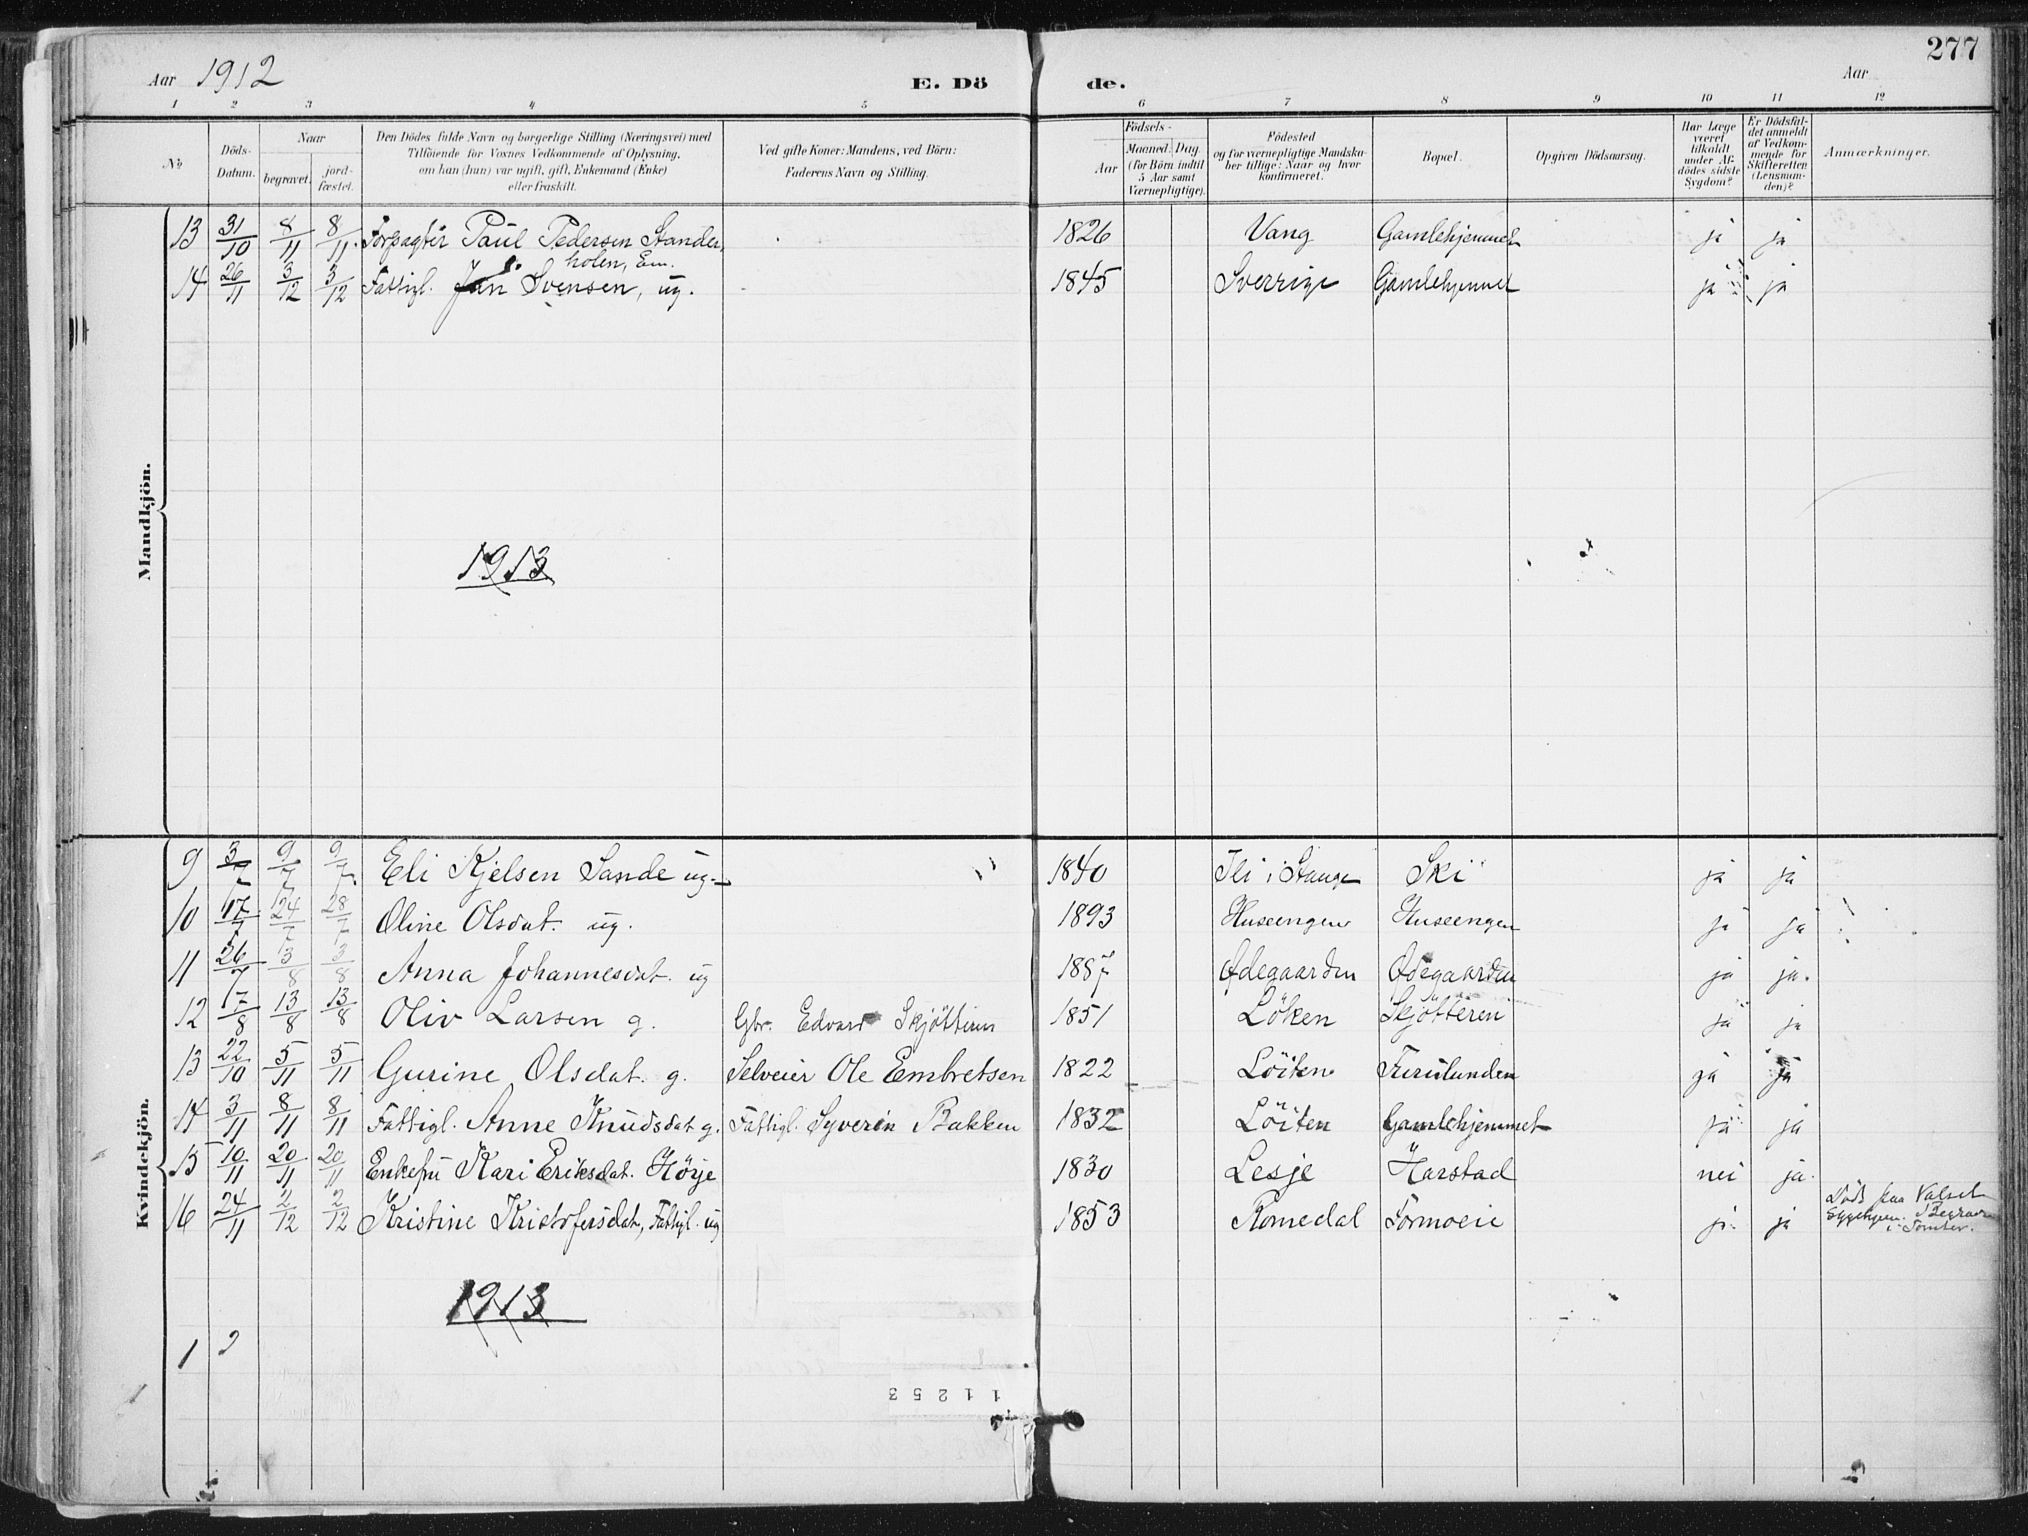 277
Aar 1912
E. Dö de.
Aar
1 2 3 4 5 6 7 8 9 10 11 12
No
Döds-Datum.
Naar
begravet.
jord-fæstet.
Den Dödes fulde Navn og borgerlige Stilling (Næringsvei) med
Tilföiende for Voxnes Vedkommende af Oplysning,
om han (hun) var ugift, gift, Enkemand (Enke)
eller fraskilt.
Ved gifte Koner: Mandens, ved Börn:
Faderens Navn og Stilling.
Födsels-
Aar
Maaned. Dag.
(for Börn indtil
5 Aar samt
Værnepligtige).
Födested
og for værnepligtige Mandska-
ber tillige: Naar og hvor
konfirmeret.
Bopæl.
Opgiven Dödsaarsag.
Har Læge
været
tilkaldt
under Af-
dödes sidste
Sygdom?
Er Dödsfal-
det anmeldt
af Vedkom-
mende for
Skifteretten
(Lensman-
den)?
Anmærkninger.
Mandkjön.
13 31/10 8/11 8/11 Forpagter Paul Pedersen Stander- 1826 Vang Gamlehjemmet ja ja
holen, Em.
14 26/11 3/12 3/12 Fattigl. Svensen, ug. 1845 Sverrige Gamlehjemmet ja ja
1913
Kvindekjön.
9 3/7 9/7 9/7 Eli Kjelsen Sande ug. 1840 Ili i Stange Ski ja ja
10 17/7 24/7 28/7 Oline Olsdat. ug. 1893 Huseengen Huseengen ja ja
11 26/7 3/8 3/8 Anna Johannesdat. ug Ödegaarden Ödegaarden ja ja.
12 17/8 13/8 13/8 Oliv Larsen g. Gbr. Edvard 1851 Löken Skjötteren ja ja
13 22/10 5/11 5/11 Gurine Olsdat. g. Selveier Ole Embretsen 1822 Löiten Furulunden ja ja
14 3/11 8/11 8/11 Fattigl. Anne Knudsdat g. Fattigl. Syverin Bakken 1832 Löiten Gamlehjemmet ja ja
15 10/11 20/11 20/11 Enkefru Kari Eriksdat. Hörje 1830 Lesje Harstad nei ja.
16 24/11 2/12 2/12 Kristine Kristofersdat, Fattigl. ug 1853 Romedal Tormoeie ja ja Död paa Valset
i Tomter.
1913
1
11253